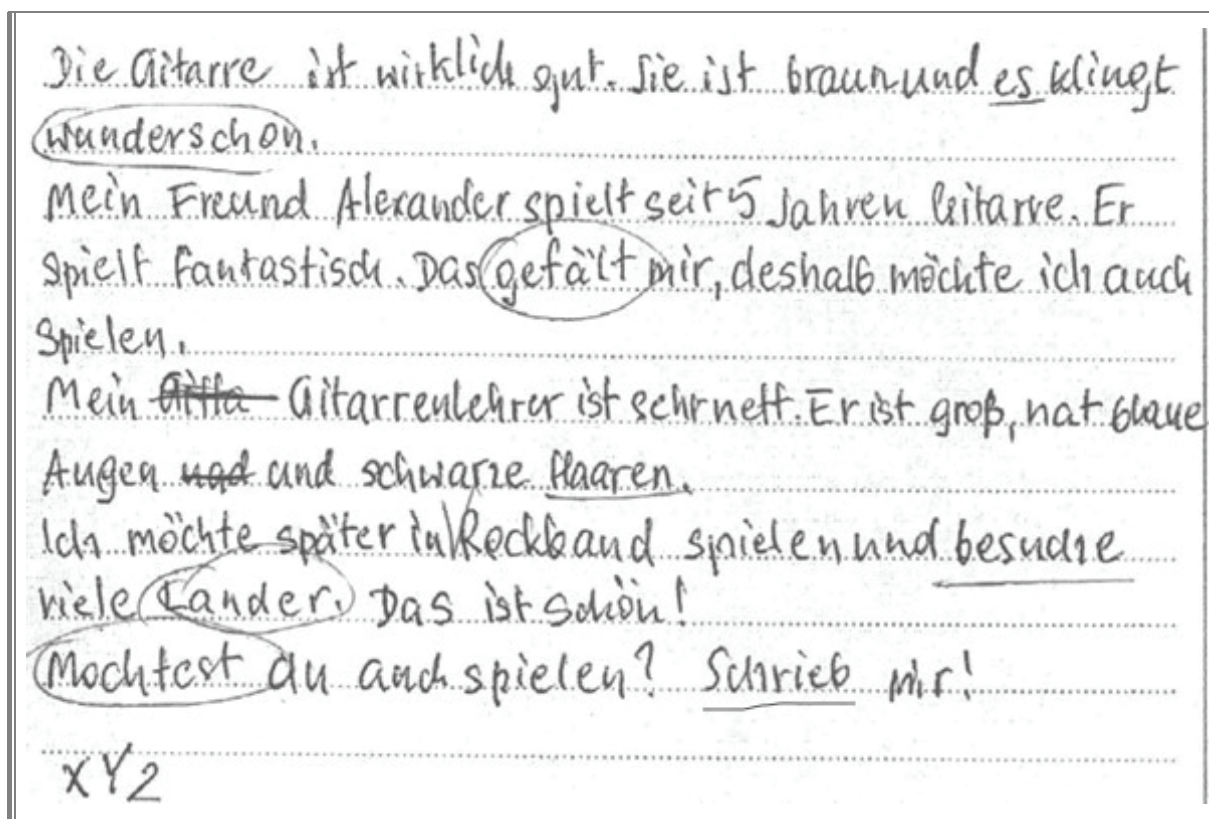 Die Gitarre ist wirklich gut. Sie ist braun und es klingt
wunderschon.
Mein Freund Alexander spielt seit 5 Jahren Gitarre. Er
spielt fantastisch. Das gefält mir, deshalb möchte ich auch
spielen.
Mein Gitta Gitarrenlehrer ist sehr nett. Er ist groß, hat blaue
Augen und und schwarze Haaren.
Ich möchte später in Rockband spielen und besuche
viele Lander. Das ist schön!
Mochtest du auch spielen? Schrieb mir!
XYZ